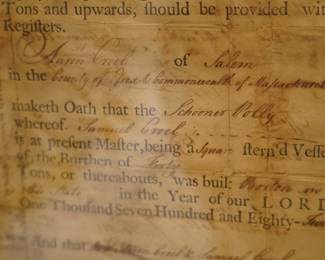 Tons and upwards, ſhould be provided wi
Regiſters.
of Salem
in the County of Eſsex & Commonwealth of Maſsachu
maketh Oath that the Schooner Polly
whereof Samuel
is at preſent Maſter, being a Square ſtern'd Veſſe
of the Burthen of Forty
Tons, or thereabouts, was built Boston in
this State in the Year of our LORD
One Thousand Seven Hundred and Eighty-
And that & Samuel